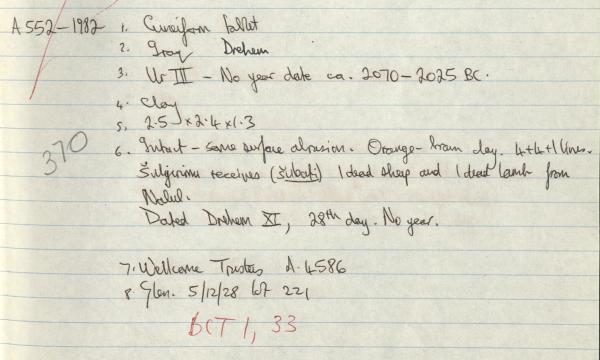 A 552-1982 1. Cuneiform tablet
2. Iraq Drehem
3. Ur III - No year date ca. 2070-2025 BC.
4. Clay
5. 2.5 x 2.4 x 1.3
370
6. Intact - some surface abrasion. Orange-brown clay. 4+4+1 lines.
Šulgirimu receives (šubati) 1 dead sheep and 1 dead lamb from
Nalul.
Dated Drehem XI, 28th day. No year.
7. Wellcome Trustees A.4586
8. Glen. 5/12/28 lot 221
BCT 1, 33